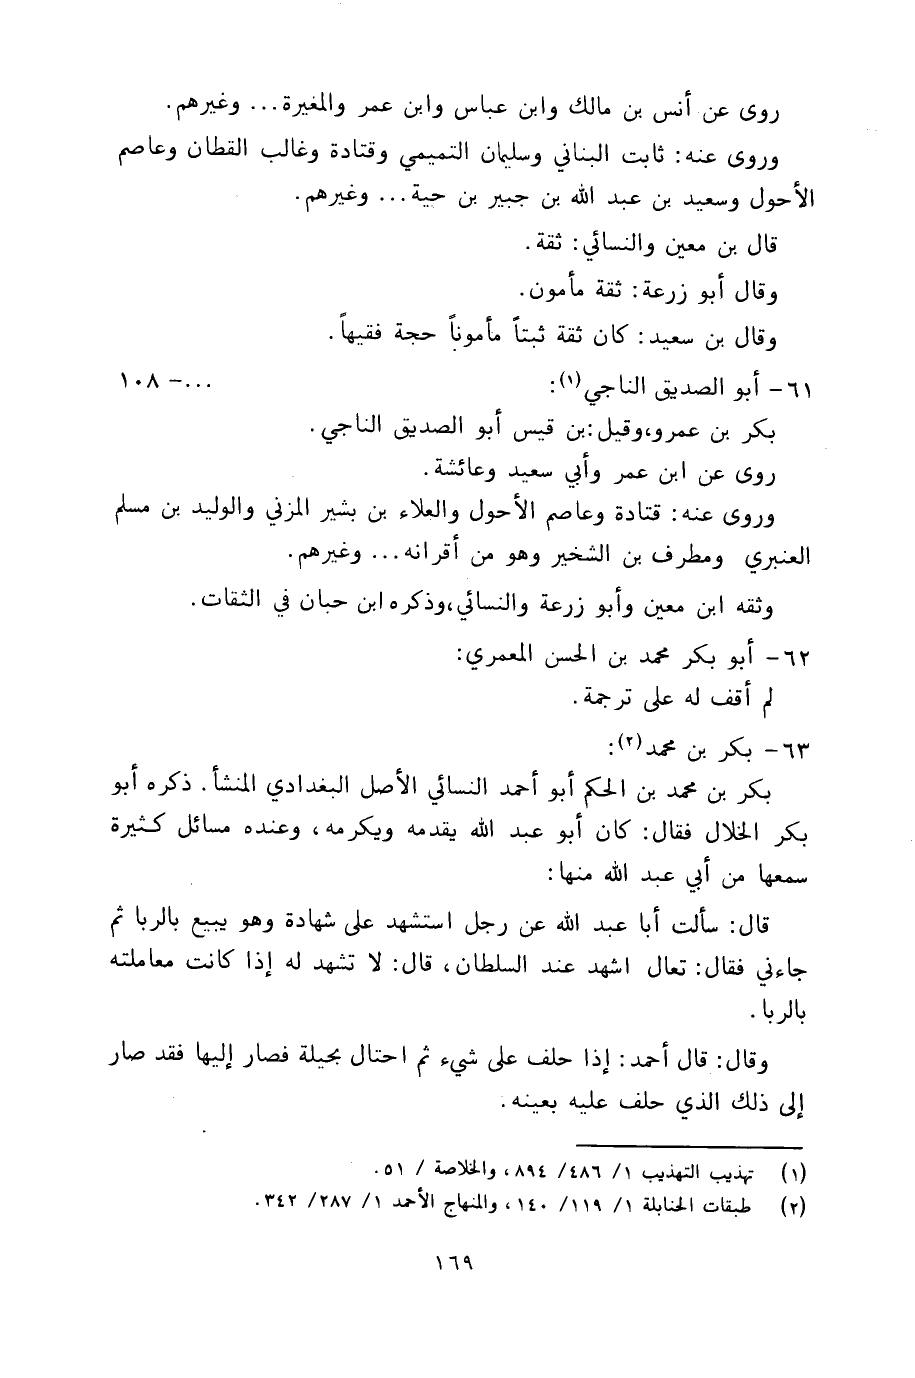 روى عن أنس بن مالك وابن عباس وابن عمر والمغيرة... وغيرهم.
وروى عنه: ثابت البناني وسليمان التميمي وقتادة وغالب القطان وعاصم
الأحول وسعيد بن عبد الله بن جبير بن حية... وغيرهم.
قال بن معين والنسائي: ثقة.
وقال أبو زرعة: ثقة مأمون.
وقال بن سعيد: كان ثقة ثبتاً مأموناً حجة فقيهاً.
٦١- أبو الصديق الناجي(١): ...- ١٠٨
بكر بن عمرو،وقيل:بن قيس أبو الصديق الناجي.
روى عن ابن عمر وأبي سعيد وعائشة.
وروى عنه: قتادة وعاصم الأحول والعلاء بن بشير المزني والوليد بن مسلم
العنبري ومطرف بن الشخير وهو من أقرانه... وغيرهم.
وثقه ابن معين وأبو زرعة والنسائي،وذكره ابن حبان في الثقات.
٦٢- أبو بكر محمد بن الحسن المعمري:
لم أقف له على ترجمة.
٦٣- بكر بن محمد(٢):
بكر بن محمد بن الحكم أبو أحمد النسائي الأصل البغدادي المنشأ. ذكره أبو
بكر الخلال فقال: كان أبو عبد الله يقدمه ويكرمه، وعنده مسائل كثيرة
سمعها من أبي عبد الله منها:
قال: سألت أبا عبد الله عن رجل استشهد على شهادة وهو يبيع بالربا ثم
جاءني فقال: تعال اشهد عند السلطان، قال: لا تشهد له إذا كانت معاملته
بالربا.
وقال: قال أحمد: إذا حلف على شيء ثم احتال بحيلة فصار إليها فقد صار
إلى ذلك الذي حلف عليه بعينه.
(١) تهذيب التهذيب ١/ ٤٨٦/ ٨٩٤، والخلاصة / ٥١.
(٢) طبقات الحنابلة ١/ ١١٩/ ١٤٠، والمنهاج الأحمد ١/ ٢٨٧/ ٣٤٢.
١٦٩